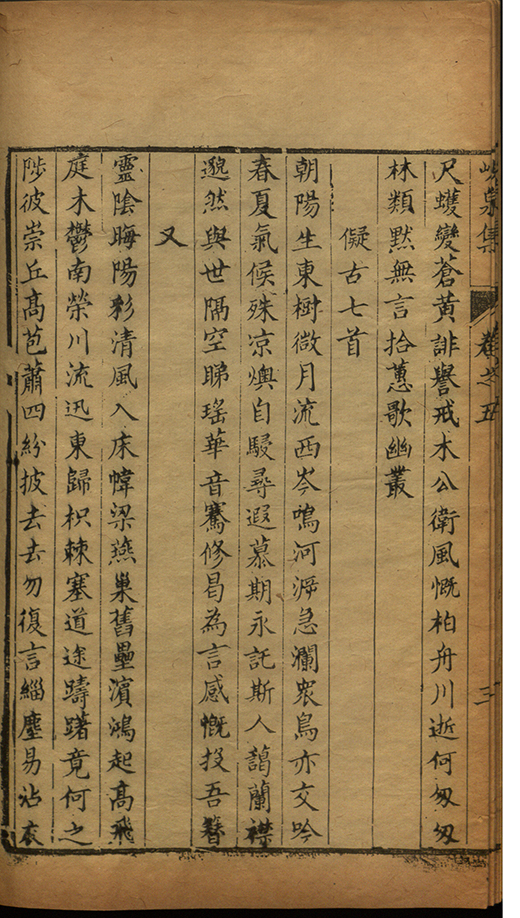 峴泉集 卷之五 三
尺蠖變蒼黃誹譽戒木公衛風慨柏舟川逝何匆匆
林類默無言拾蕙歌幽叢
儗古七首
朝陽生東樹微月流西岑鳴河淙急瀾衆鳥亦交吟
春夏氣候殊凉燠自駸尋遐慕期永託斯人藹蘭襟
邈然與世隔空睇瑤華音騫修曷為言感慨投吾簪
又
靈陰晦陽彩清風入床幃梁燕巢舊壘濱鴻起高飛
庭木鬱南榮川流迅東歸枳棘塞道途躊躇竟何之
陟彼崇丘高芭蕭四紛披去去勿復言緇塵易沾衣